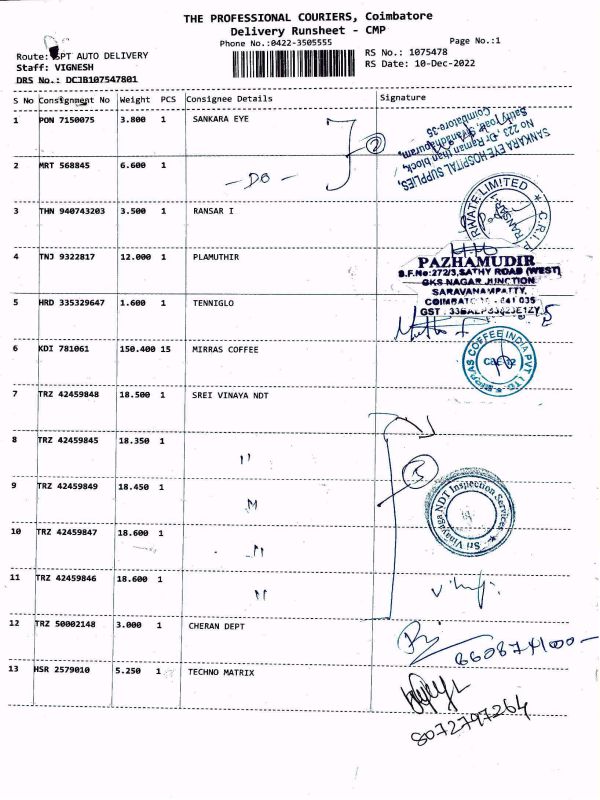 THE PROFESSIONAL COURIERS, Coimbatore
Delivery Runsheet - CMP
Phone No.:0422-3505555
Page No.:1
Route: SPT AUTO DELIVERY
RS No.: 1075478
Staff: VIGNESH
RS Date: 10-Dec-2022
DRS No.: DCJB107547801
S No Consignment No Weight PCS Consignee Details Signature
1 PON 7150075 3.800 1 SANKARA EYE
2
SANKARA EYE HOSPITAL SUPPLIES,
No 223, Dr Raman than block,
Sathy road, Sivanandhapuram,
Coimbatore-35
2 MRT 568845 6.600 1 - DO -
3 THN 940743203 3.500 1 RANSAR I
4 TNJ 9322817 12.000 1 PLAMUTHIR
PAZHAMUDIR
S.F.No:272/3,SATHY ROAD (WEST)
GKS NAGAR JUNCTION
SARAVANAMPATTY,
5 HRD 335329647 1.600 1 TENNIGLO
6 KDI 781061 150.400 15 MIRRAS COFFEE
7 TRZ 42459848 18.500 1 SREI VINAYA NDT
8 TRZ 42459845 18.350 1 "
5
9 TRZ 42459849 18.450 1 "
Sri Vinayaga NDT Inspection Services
10 TRZ 42459847 18.600 1 "
11 TRZ 42459846 18.600 1 "
12 TRZ 50002148 3.000 1 CHERAN DEPT
13 HSR 2579010 5.250 1 TECHNO MATRIX
8072797264